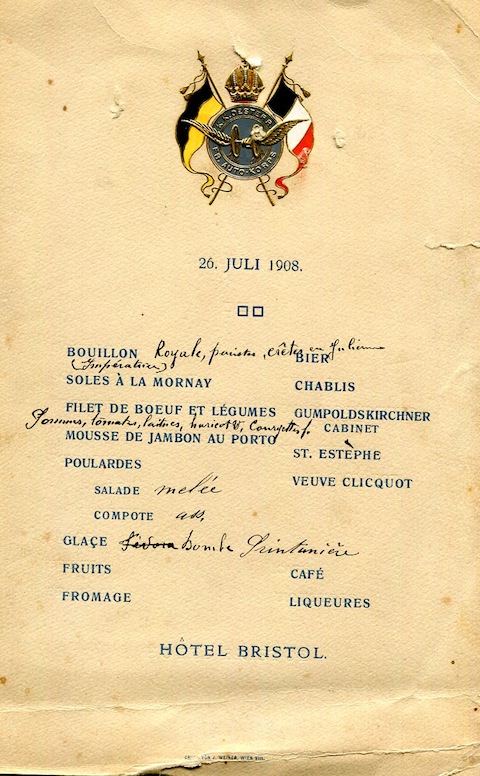 K.K. OESTERR.
FR. AUTO-KORPS
26. JULI 1908.
BOUILLON Royale, pointes, crêtes en Julienne
BIER
(Impératrice)
SOLES À LA MORNAY
CHABLIS
FILET DE BOEUF ET LÉGUMES
GUMPOLDSKIRCHNER
Pommes, tomates, laitues, haricots v, Courgettes f.
CABINET
MOUSSE DE JAMBON AU PORTO
ST. ESTÈPHE
POULARDES
VEUVE CLICQUOT
SALADE melée
COMPOTE ass.
GLAÇE Bombe Printanière
FRUITS
CAFÉ
FROMAGE
LIQUEURES
HÔTEL BRISTOL.
J. WEINER, WIEN